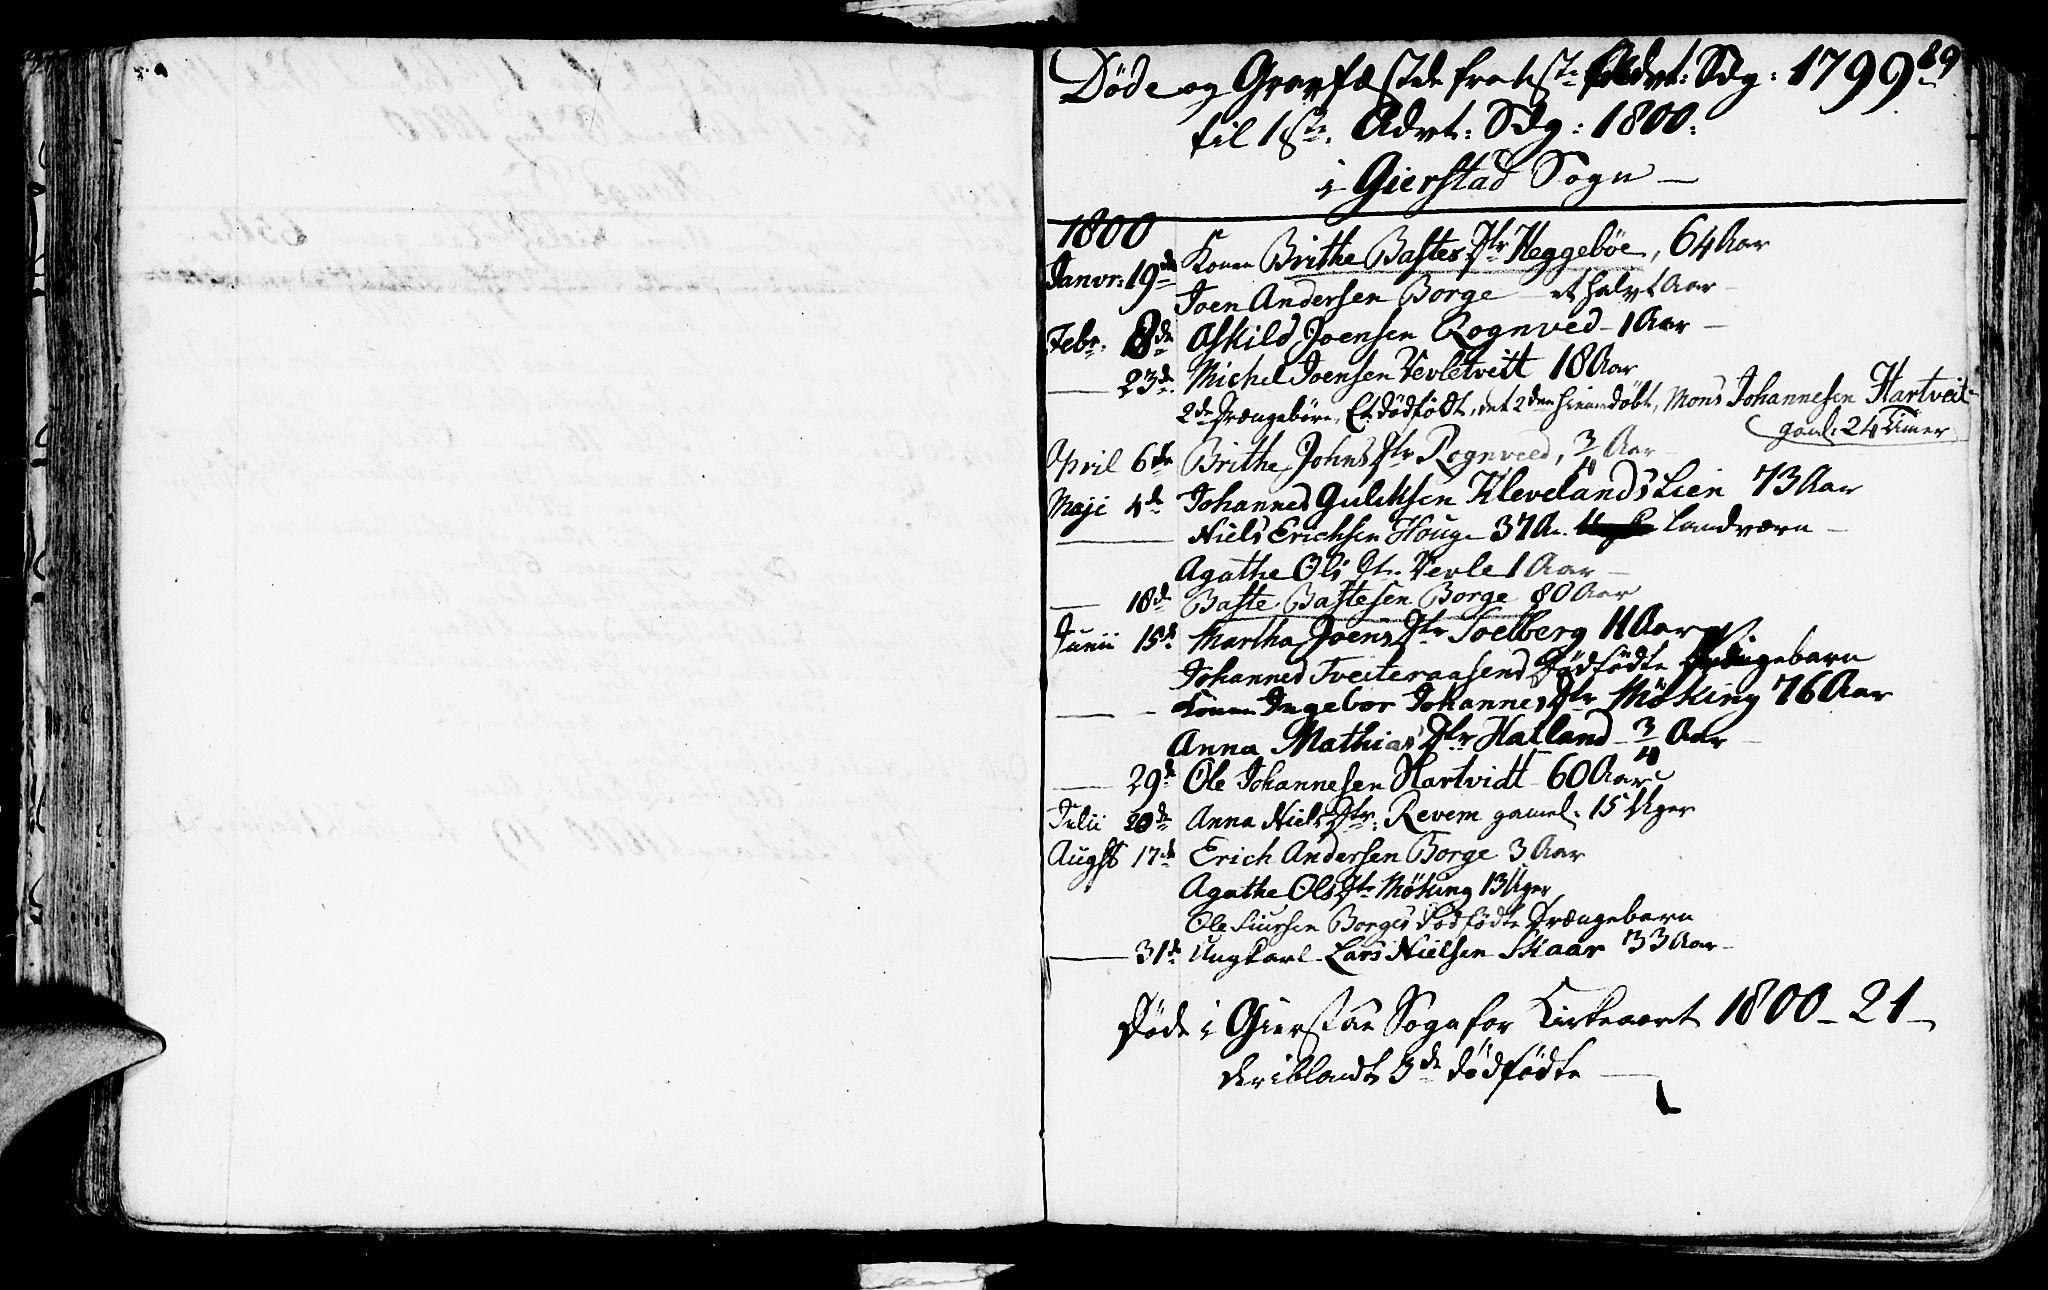 89
Døde og Gravfæstde fra 1ste Advt: Sdg: 1799
til 1ste Advt: Sdg: 1800.
i Gierstad Sogn
1800
Janvr: 19de Konen Brithe Bastes Dtr Heggebøe, 64 Aar
Joen Andersen Borge et halvt Aar
Febr. 8de Askild Joensen Rognved 1 Aar
23de Michel Joensen Vevletvitt 18 Aar
2de Drængebørn, Et dødfødt, det 2den hiemmedøbt, Mons Johannesen Hartveit
gaml: 24 Timer
April 6te Brithe Johns Dtr Rognveed, 3/4 Aar
Maji 4de Johannes Gulaksen Klevelands Lien 73 Aar
Niels Erichsen Houge 37 A. Landværn
Agathe Ols Dtr Vevle 1 Aar
18de Baste Bastesen Borge 80 Aar
Junii 15de Martha Joens Dtr Soelberg 11 Aar
Johannes Tveiteraasens Dødfødte Drængebarn
Konen Ingebor Johannes Dtr Møking 76 Aar
Anna Mathias Dtr Hatland 3/4 Aar
29de Ole Johannesen Hartvidt 60 Aar
Julii 20de Anna Niels Dtr: Revem gamel. 15 Uger
Augst 17de Erich Andersen Borge 3 Aar
Agathe Ols Dtr Møking 13 Uger
Ole Siursen Borges Dødfødte Drængebarn
31te Ungkarl Lars Nielsen Skaar 33 Aar
Døde i Gierstad Sogn for Kirkeaaret 1800 - 21
deriblandt 3de dødfødte